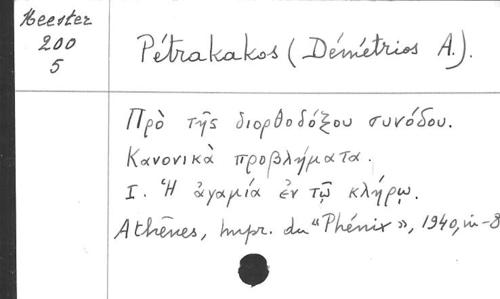 Heester
200
5
Pétrakakos (Démétrios A.).
Πρὸ τῆς διορθοδόξου συνόδου.
Κανονικὰ προβλήματα.
I. Ἡ ἀγαμία ἐν τῷ κλήρῳ.
Athênes, Impr. du "Phénix", 1940, in-8